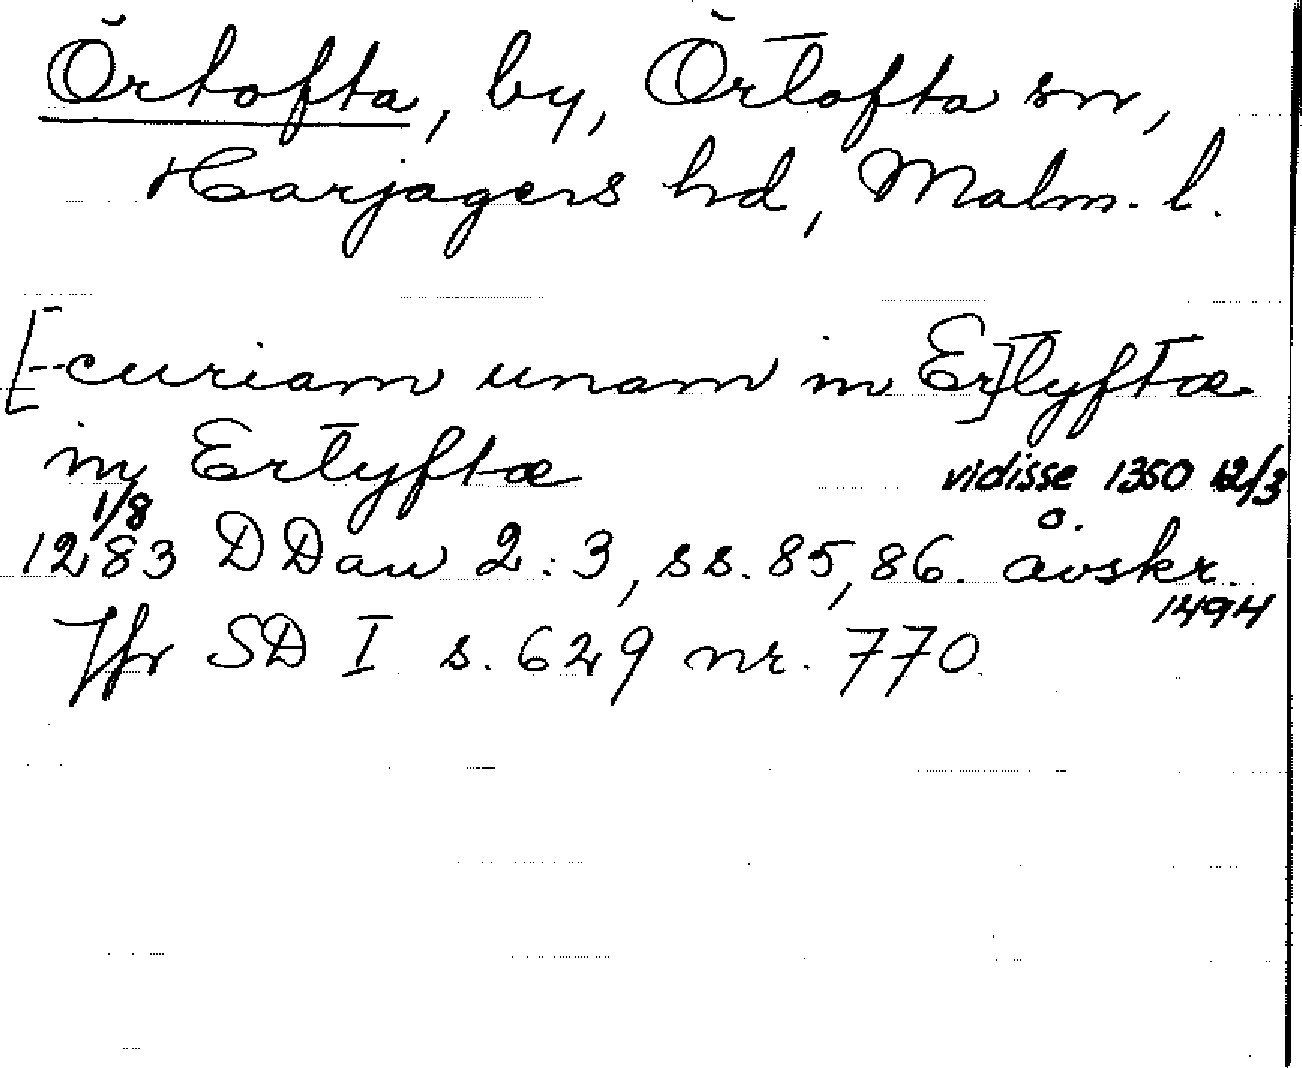 Örtofta, by, Örtofta sn,
Harjagers hd, Malm. l.
[-curiam unam in Er]tyftæ
in Ertyftæ
vidisse 1350 12/3
1/8
o.
1283 DDan 2:3, ss. 85, 86. avskr.
1494
Jfr SD I s. 629 nr. 770